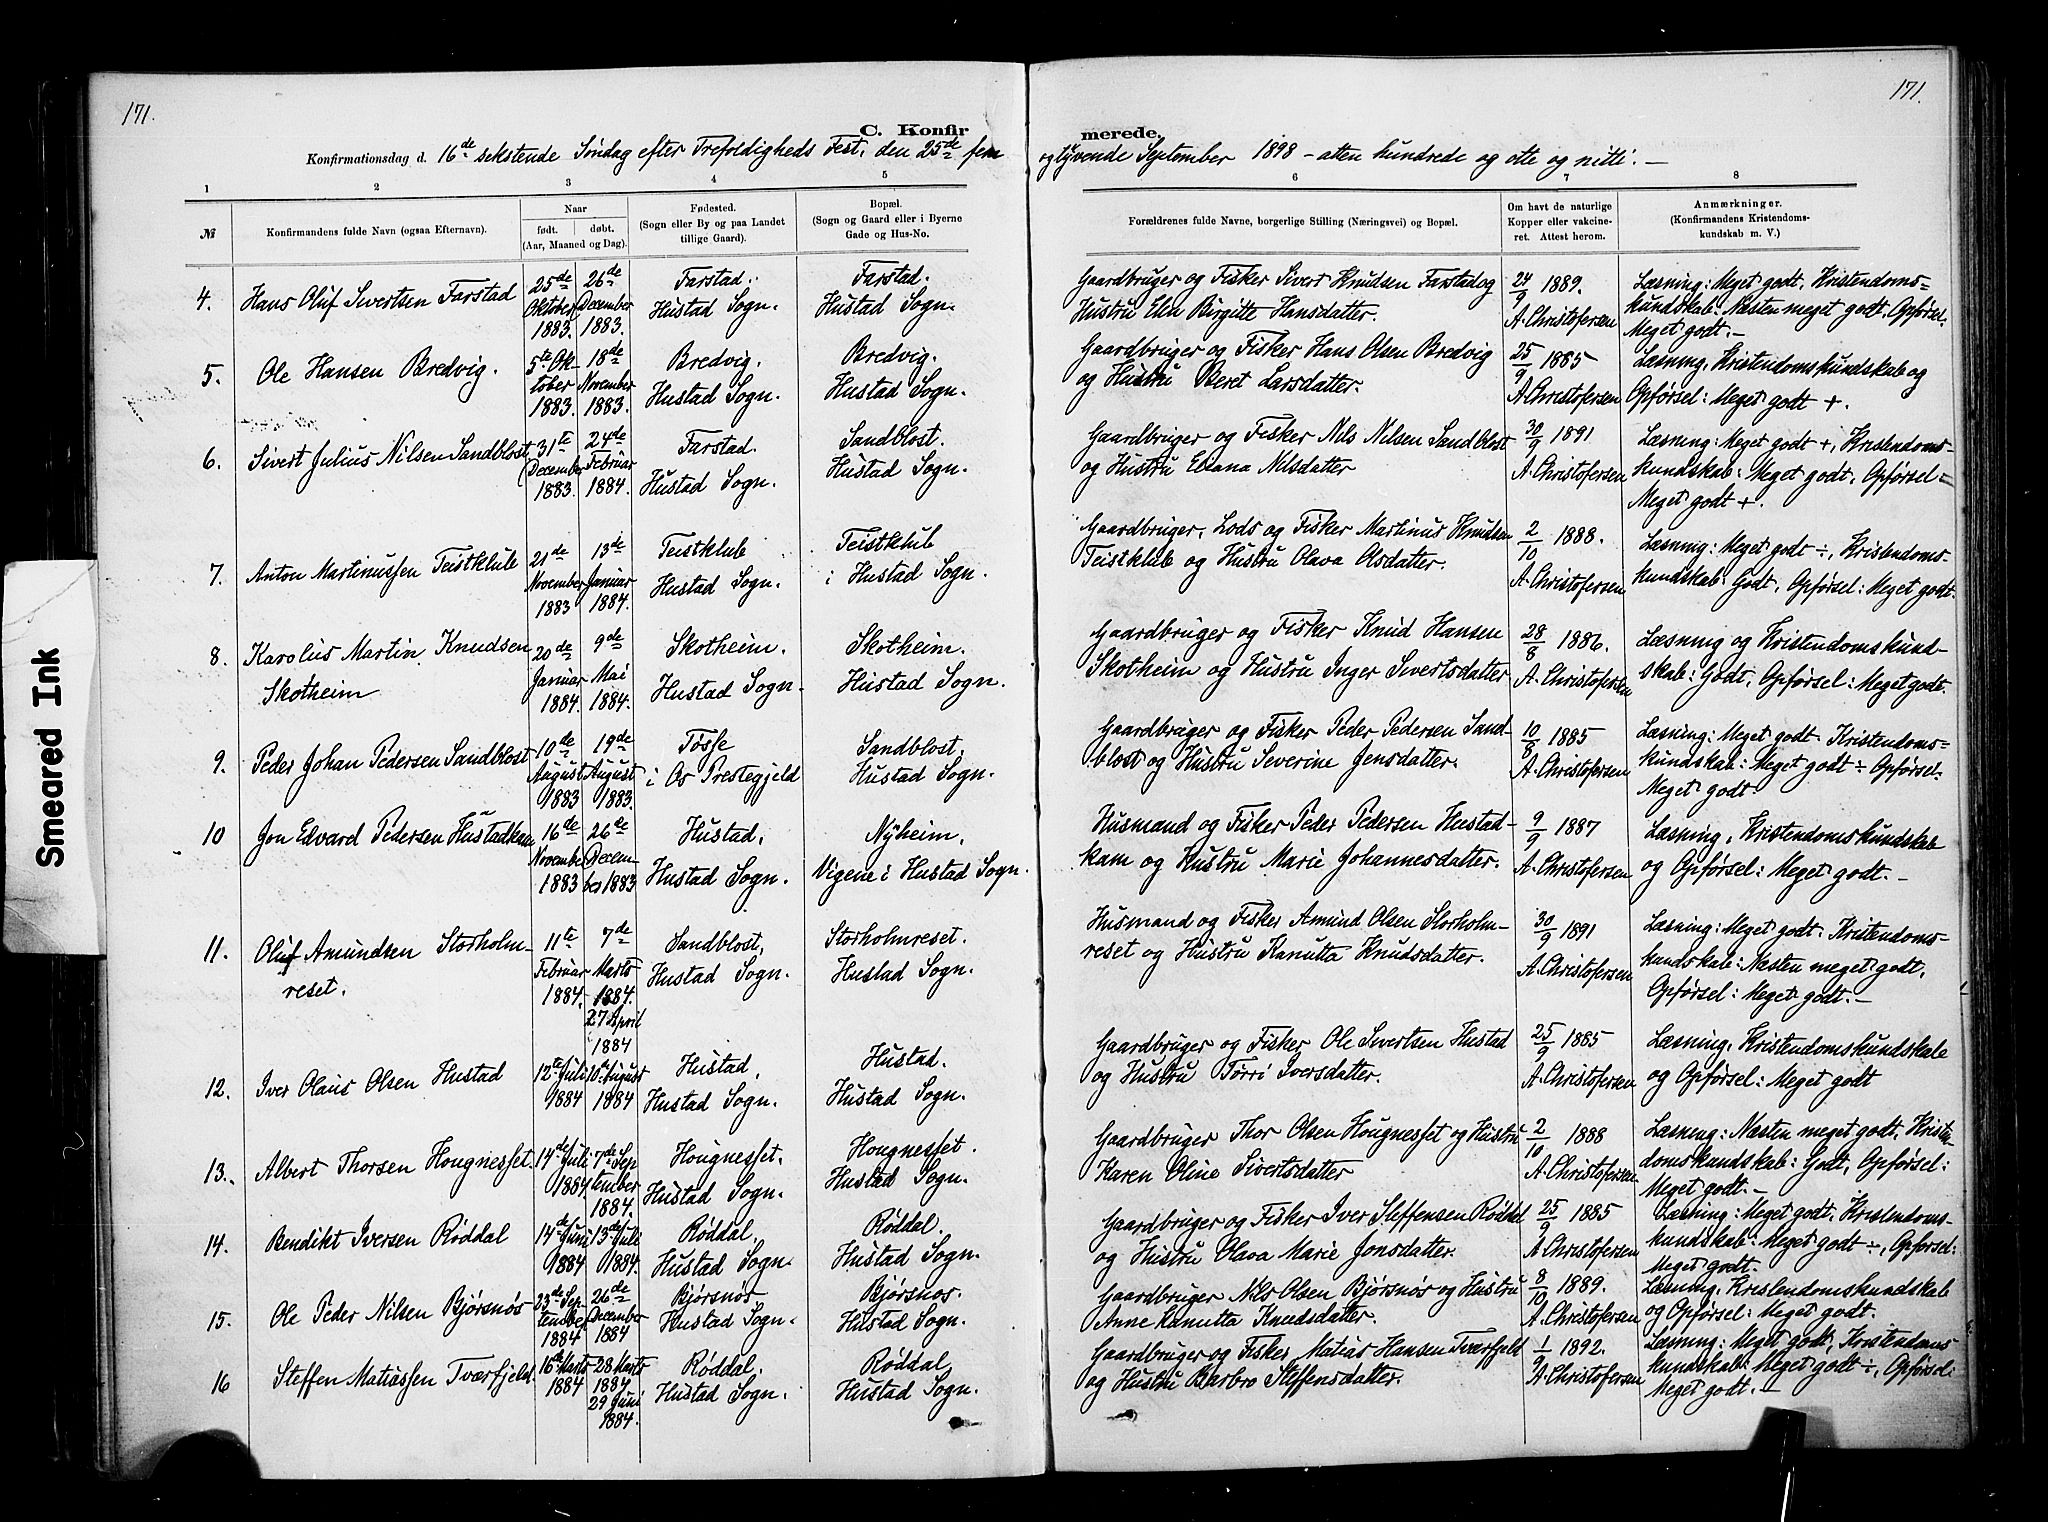 171.
171.
C. Konfir
merede.
Konfirmationsdag d. 16de sekstende Søndag efter Trefoldigheds Fest, den 25de fem
og tyvende September 1898 – atten hundrede og otte og nitti. –
1 2 3 4 5
6 7 8
№
Konfirmandens fulde Navn (ogsaa Efternavn).
Naar
født. døbt.
(Aar, Maaned og Dag).
Fødested.
(Sogn eller By og paa Landet
tillige Gaard).
Bopæl.
(Sogn og Gaard eller i Byerne
Gade og Hus-No.
Forældrenes fulde Navne, borgerlige Stilling (Næringsvei) og Bopæl.
Om havt de naturlige
Kopper eller vakcine-
ret. Attest herom.
Anmærkninger.
(Konfirmandens Kristendoms-
kundskab m. V.)
4. Hans Oluf Sivertsen Farstad
25de Oktober 1883.
26de December 1883.
Farstad.
Hustad Sogn.
Farstad.
Hustad Sogn.
Gaardbruger og Fisker Sivert Knudsen Farstad og
Hustru Elen Birgitte Hansdatter.
24/9 1889.
A. Christofersen
Læsning: Meget godt, Kristendoms=
kundskab: Næsten meget godt, Opførsel.
Meget godt. –
5. Ole Hansen Bredvig.
5te Oktober 1883.
18de November 1883.
Bredvig.
Hustad Sogn.
Bredvig.
Hustad Sogn.
Gaardbruger og Fisker Hans Olsen Bredvig
og Hustru Beret Larsdatter.
25/9 1885
A. Christofersen
Læsning, Kristendomskundskab og
Opførsel: Meget godt +.
6. Sivert Julius Nilsen Sandblost
31te December 1883.
24de Februar 1884.
Farstad.
Hustad Sogn.
Sandblost.
Hustad Sogn.
Gaardbruger og Fisker Nils Nilsen Sandblost
og Hustru Eliana Nilsdatter
30/9 1891
A. Christofersen
Læsning: Meget godt +, Kristendoms-
kundskab: Meget godt, Opførsel=
Meget godt +.
7. Anton Martinussen Teistklub
21de November 1883
13de Januar 1884.
Teistklub
Hustad Sogn.
Teistklub
i Hustad Sogn.
Gaardbruger, Lods og Fisker Martinus Knudsen
Teistklub og Hustru Olava Olsdatter.
2/10 1888.
A. Christofersen
Læsning: Meget godt ÷, Kristendoms-
kundskab: Godt, Opførsel: Meget godt.
8. Karolus Martin Knudsen
Skotheim
20de Januar 1884.
9de Mai 1884.
Skotheim.
Hustad Sogn.
Skotheim.
Hustad Sogn.
Gaardbruger og Fisker Knud Hansen
Skotheim og Hustru Inger Sivertsdatter
28/8 1886.
A. Christofersen
Læsning og Kristendomskund-
skab: Godt, Opførsel: Meget godt.
9. Peder Johan Pedersen Sandblost
10de August 1883
19de August 1883.
Tøsse
i Os Prestegjeld
Sandblost.
Hustad Sogn.
Gaardbruger og Fisker Peder Pedersen Sand-
blost og Hustru Severine Jensdatter.
10/8 1885
A. Christofersen
Læsning: Meget godt. Kristendoms-
kundskab: Meget godt ÷ Opførsel.
Meget godt.
10 Jon Edvard Pedersen Hustadkam
16de November 1883
26de December 1883
Hustad,
Hustad Sogn.
Nyheim,
Vigene i Hustad Sogn.
Husmand og Fisker Peder Pedersen Hustad-
kam og Hustru Marie Johannesdatter.
9/9 1887
A. Christofersen
Læsning, Kristendomskundskab
og Opførsel: Meget godt. –
11. Oluf Amundsen Storholm-
reset.
11te Februar 1884.
7de Marts 1884.
27 April 1884
Sandblost,
Hustad Sogn.
Storholmreset.
Hustad Sogn.
Husmand og Fisker Amund Olsen Storholm-
reset og Hustru Kanutta Knudsdatter.
30/9 1891
A. Christofersen
Læsning: Meget godt. Kristendoms-
kundskab: Næsten meget godt,
Opførsel: Meget godt. –
12. Iver Olaus Olsen Hustad
12te Juli 1884
10de August 1884
Hustad,
Hustad Sogn.
Hustad.
Hustad Sogn.
Gaardbruger og Fisker Ole Sivertsen Hustad
og Hustru Torri Iversdatter.
25/9 1885
A. Christofersen
Læsning, Kristendomskundskab
og Opførsel: Meget godt
13. Albert Thorsen Hougnesset.
14de Juli 1884.
7de September 1884.
Hougnesset.
Hustad Sogn.
Hougnesset.
Hustad Sogn.
Gaardbruger Thor Olsen Hougnesset og Hustru
Karen Oline Sivertsdatter
2/10 1888
A. Christofersen
Læsning: Næsten meget godt, Kristen-
domskundskab: Godt, Opførsel:
Meget godt. –
14. Bendikt Iversen Røddal
14de Juni 1884
13de Juli 1884.
Røddal,
Hustad Sogn.
Røddal.
Hustad Sogn.
Gaardbruger og Fisker Iver Steffensen Røddal
og Hustru Olava Marie Jonsdatter.
25/9 1885
A. Christofersen
Læsning: Meget godt, Kristendoms-
kundskab: Meget godt ÷, Opførsel:
Meget godt.
15. Ole Peder Nilsen Bjørsnøs
23de September 1884
26de December 1884
Bjørsnøs
Hustad Sogn.
Bjørsnos.
Hustad Sogn.
Gaardbruger Nils Olsen Bjørsnøs og Hustru
Anne Kanutta Knudsdatter.
8/10 1889.
A. Christofersen
Læsning, Kristendomskundskab
og Opførsel: Meget godt.
16 Steffen Matiassen Tværfjeld.
16de Marts 1884
28 Marts 1884
29 Juni 1884.
Røddal.
Hustad Sogn.
Røddal
Hustad Sogn.
Gaardbruger og Fisker Matias Hansen Tværfjeld
og Hustru Barbro Steffensdatter.
1/9 1892.
A. Christofersen
Læsning: Meget godt, Kristendoms
kundskab: Meget godt ÷, Opførsel:
Meget godt. –
Smeared Ink